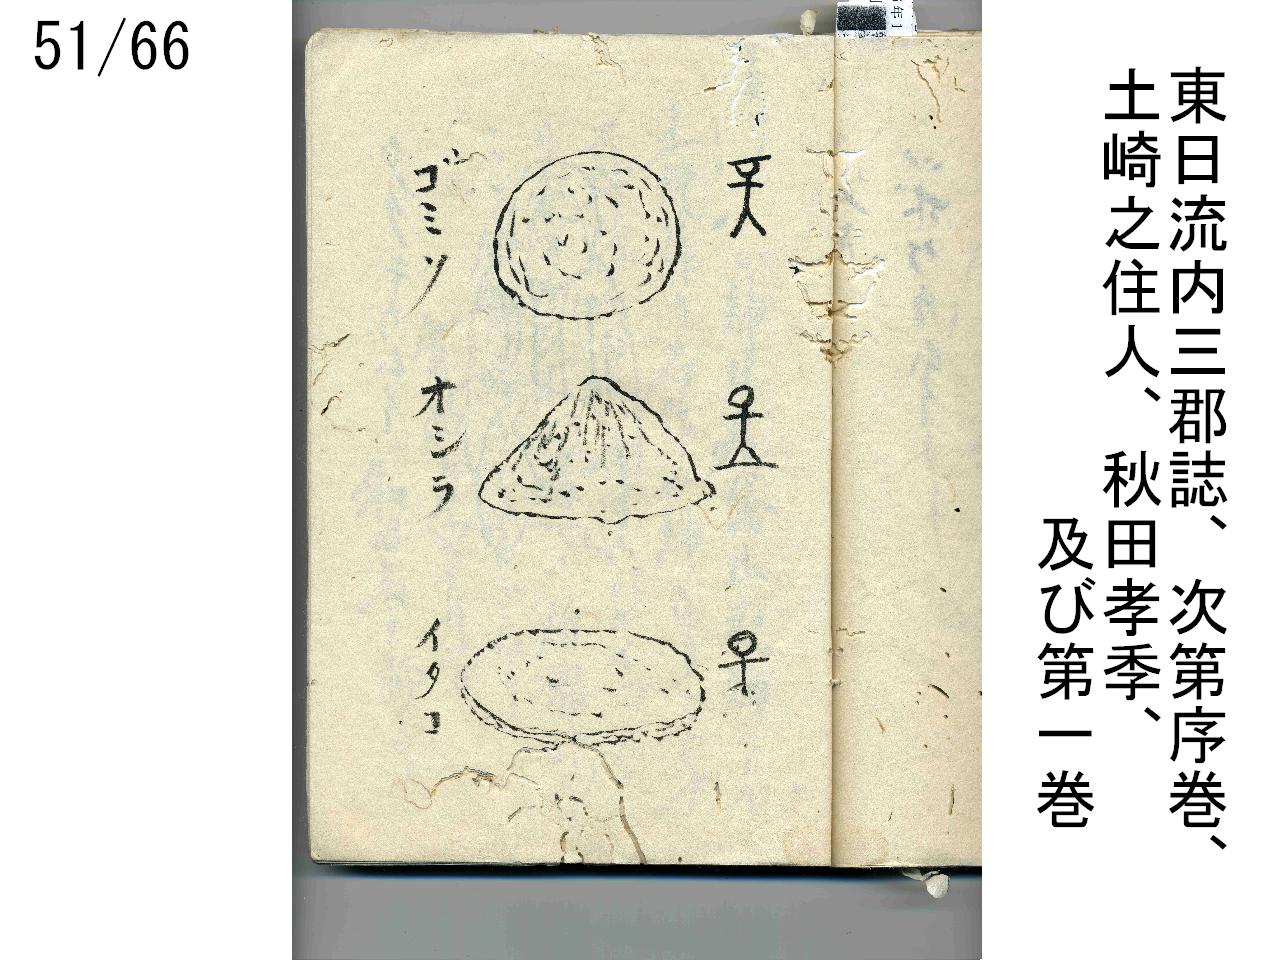 51/66
東日流内三郡誌、次第序巻、
土崎之住人、秋田孝季、
及び第一巻
ゴミソ
オシラ
イタコ